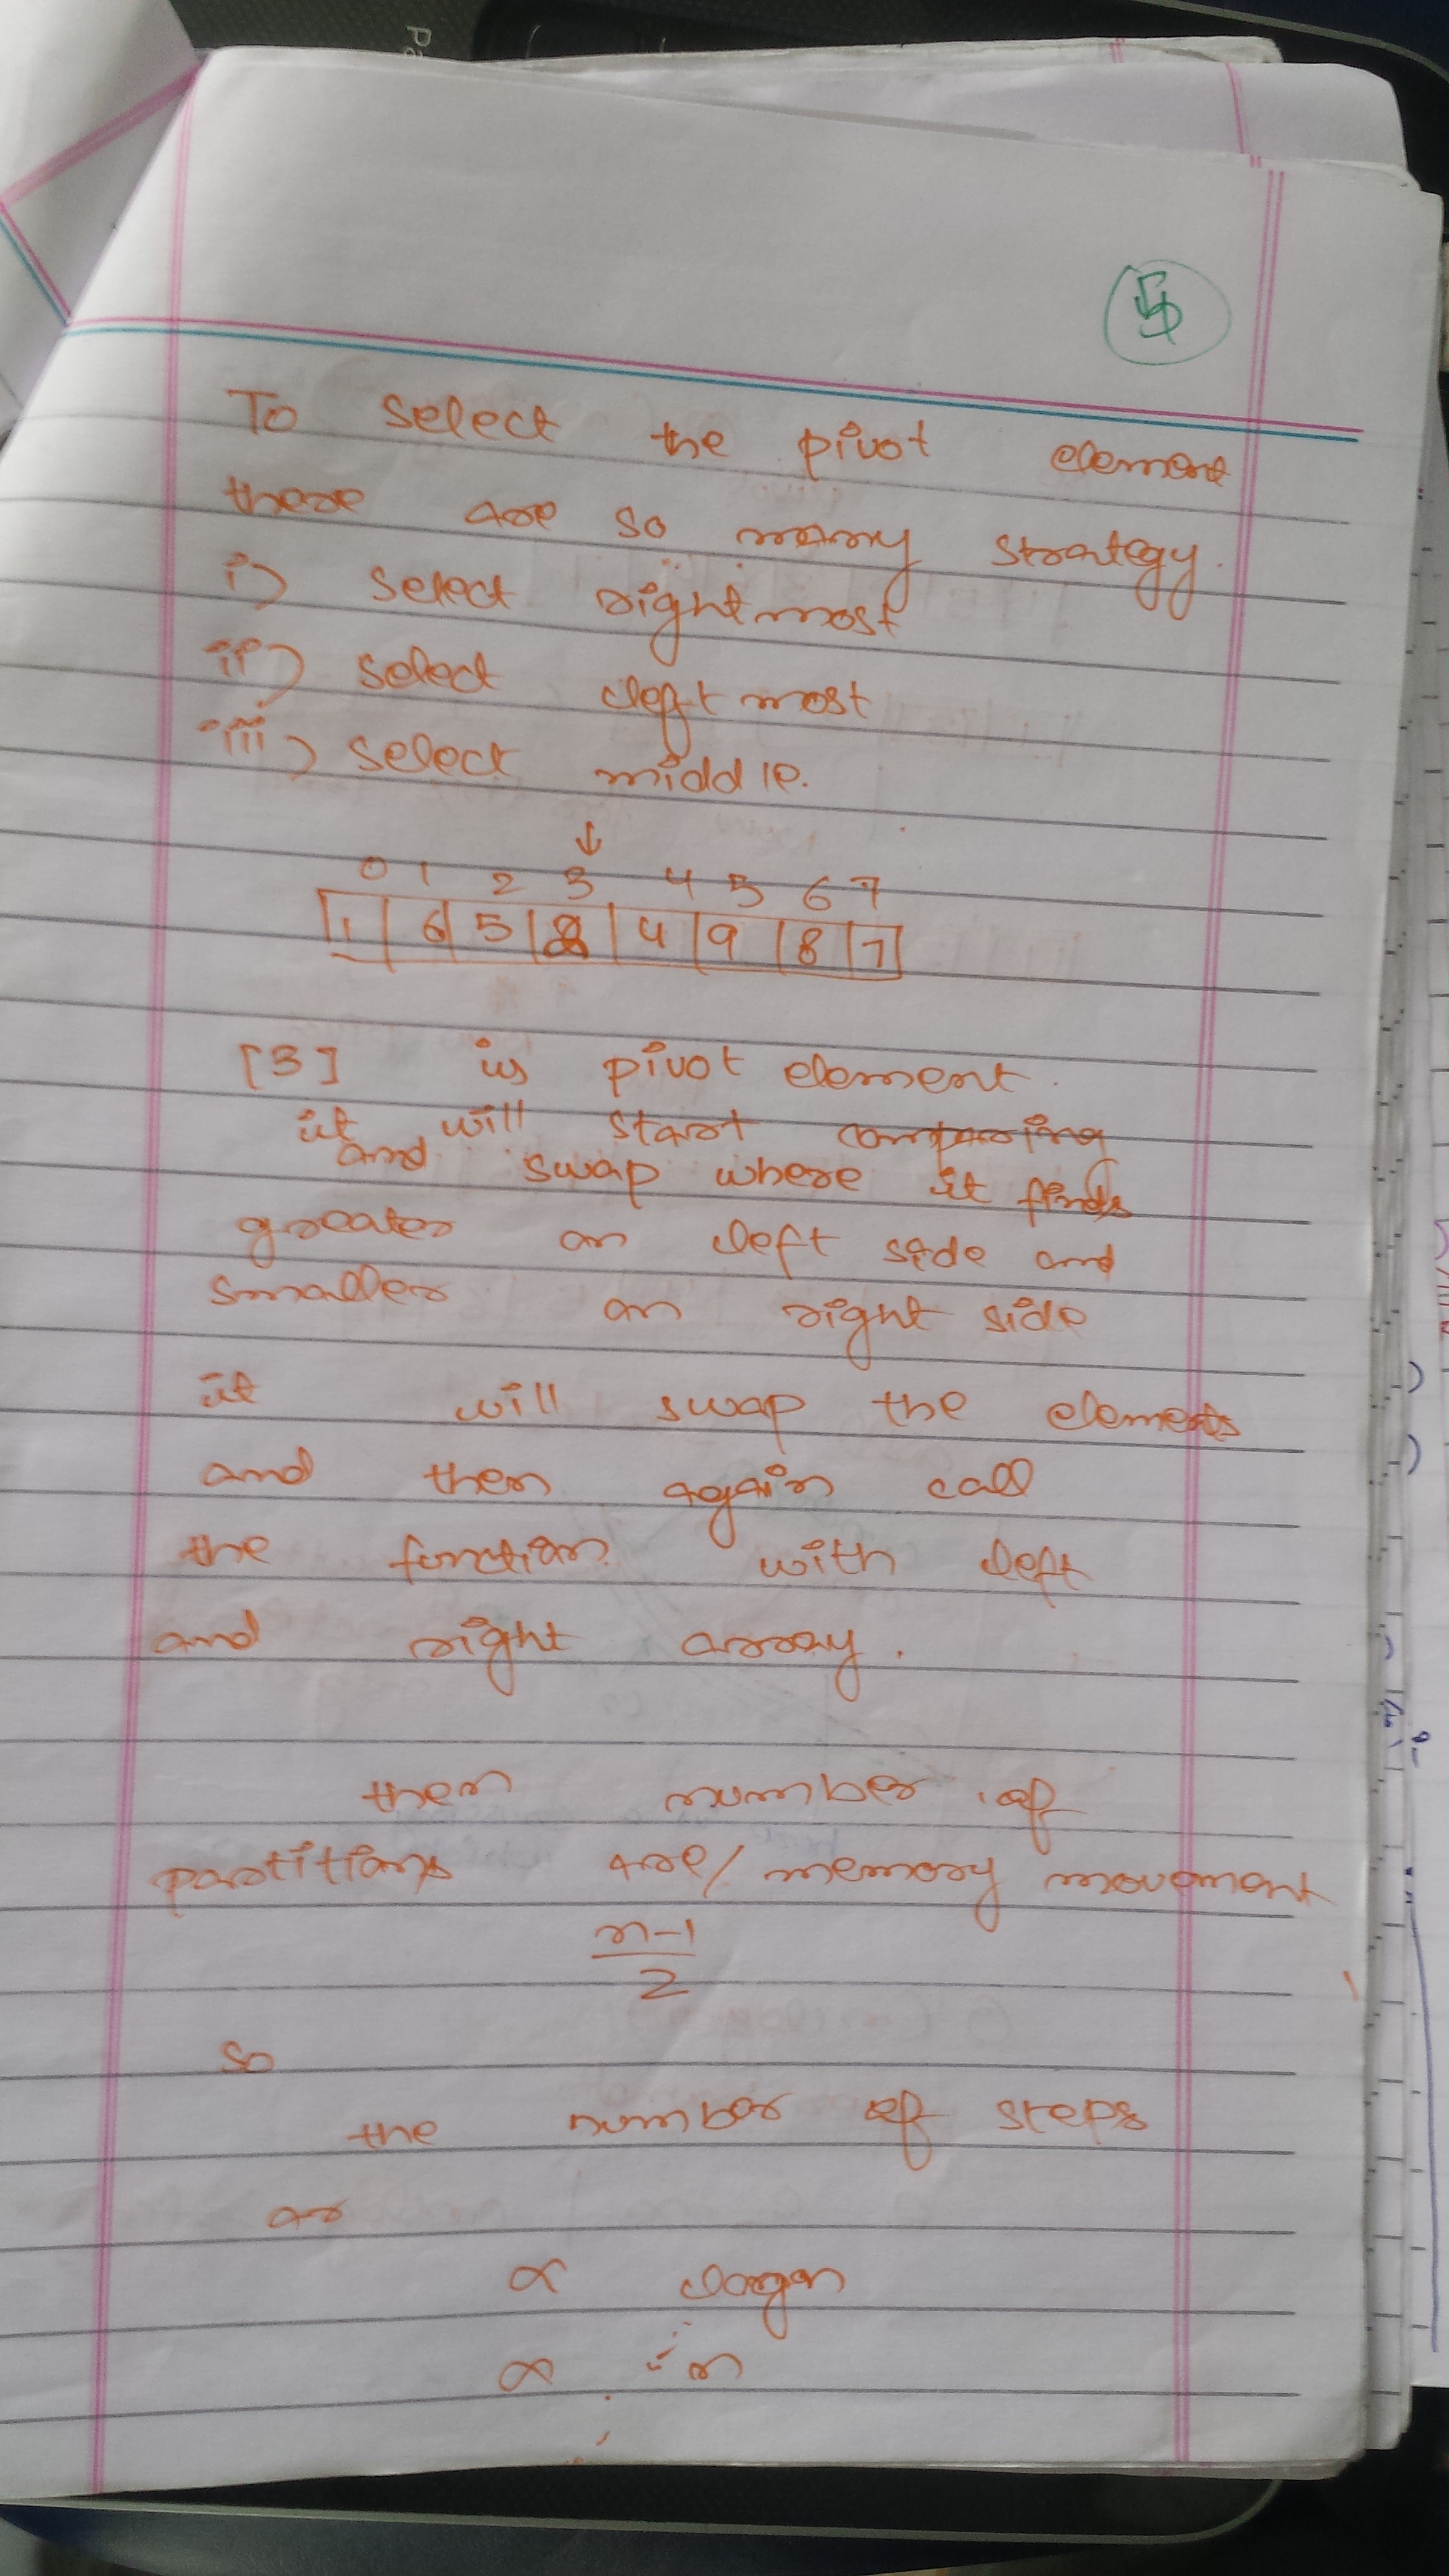 5
To select the pivot element
there are so many strategy.
i) select rightmost
ii) select leftmost
iii) select middle.
↓
0 1 2 3 4 5 6 7
1 6 5 4 9 8 7
[3] is pivot element.
it will start comparing
and swap where it finds
greater on left side and
smaller on right side
it will swap the elements
and then again call
the function with left
and right array.
then number of
partitions are/ memory movement
n-1
2
so
the number of steps
∝ logn
∝ n